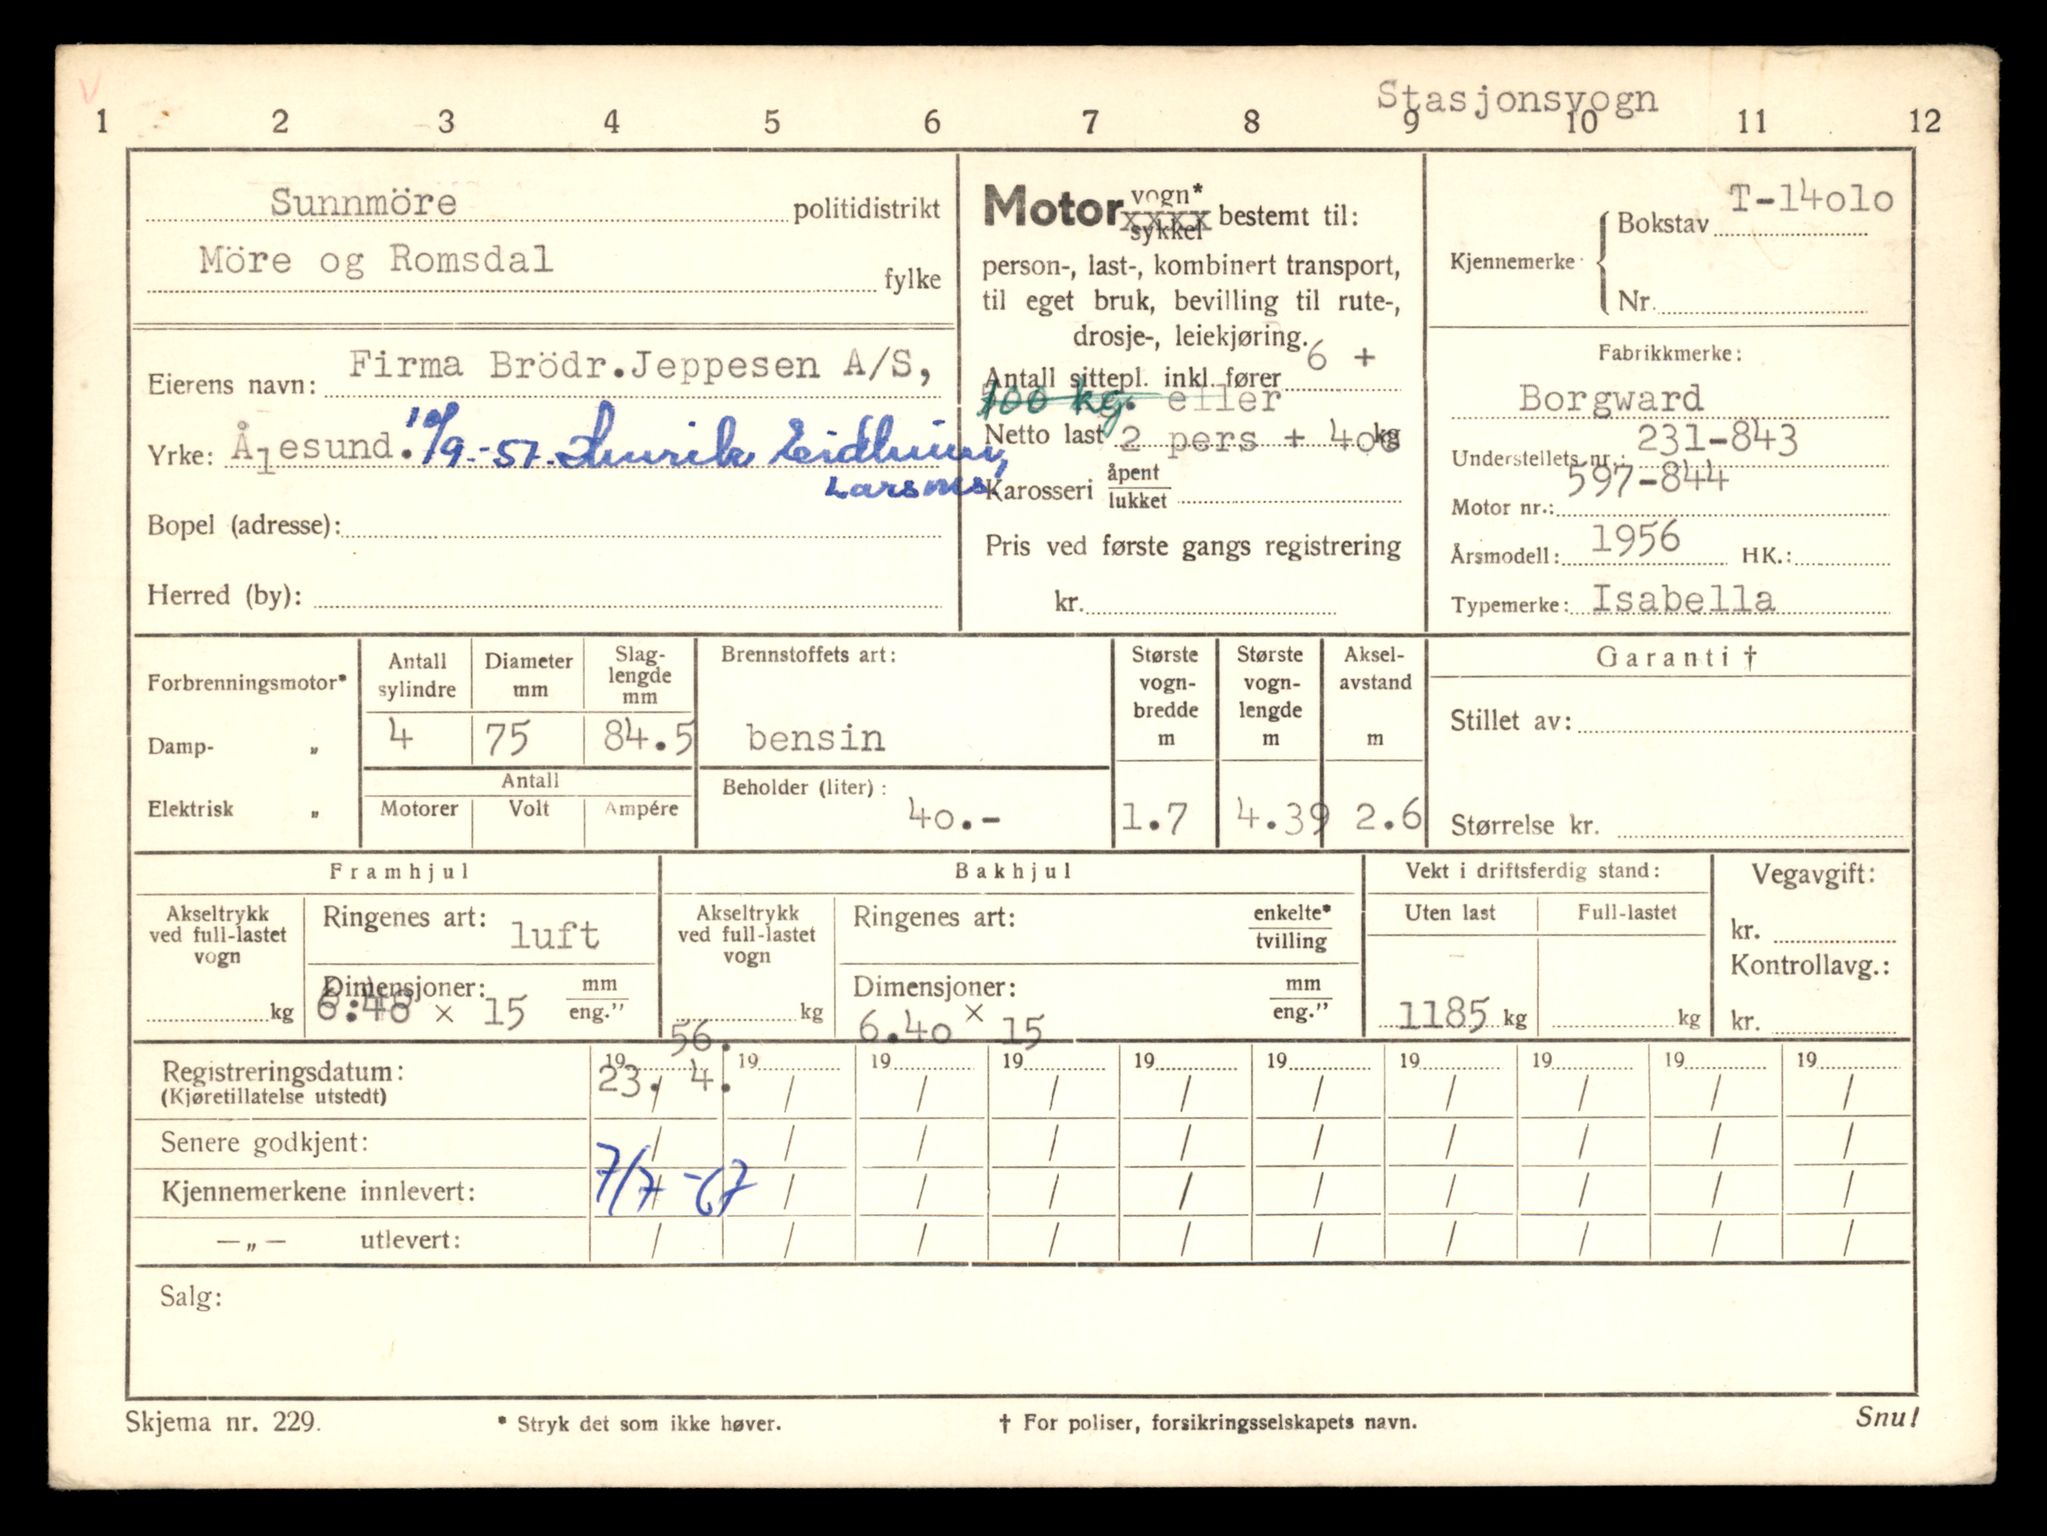 Stasjonsvogn
1 2 3 4 5 6 7 8 9 10 11 12
Sunnmöre politidistrikt
Möre og Romsdal fylke
Eierens navn: Firma Brödr.Jeppesen A/S,
Yrke: Ålesund. /9-57. Eidheim,
Larsnes.
Bopel (adresse):
Herred (by):
Motor vogn* xxxx sykkel bestemt til:
person-, last-, kombinert transport,
til eget bruk, bevilling til rute-,
drosje-, leiekjøring.
Antall sittepl. inkl. fører 6 +
100 kg. eller
Netto last 2 pers + 400 kg
Karosseri åpent lukket
Pris ved første gangs registrering
kr.
Kjennemerke Bokstav T-14010
Nr.
Fabrikkmerke:
Borgward
Understellets nr.: 231-843
Motor nr.: 597-844
Årsmodell: 1956 HK.:
Typemerke: Isabella
Forbrenningsmotor*
Damp- „
Elektrisk „
Antall sylindre
4
Diameter mm
75
Slag-
lengde
mm
84.5
Antall
Motorer Volt Ampére
Brennstoffets art:
bensin
Beholder (liter):
40.-
Største
vogn-
bredde
m
1.7
Største
vogn-
lengde
m
4.39
Aksel-
avstand
m
2.6
Garanti †
Stillet av:
Størrelse kr.
Framhjul
Akseltrykk
ved full-lastet
vogn
kg
Ringenes art: luft
Dimensjoner: mm eng.”
6.40 × 15
Bakhjul
Akseltrykk
ved full-lastet
vogn
kg
Ringenes art: enkelte* tvilling
Dimensjoner: mm eng.”
6.40 × 15
Vekt i driftsferdig stand:
Uten last Full-lastet
1185 kg kg
Vegavgift:
kr.
Kontrollavg.:
kr.
Registreringsdatum: 19 56. 19 19 19 19 19 19 19 19 19
(Kjøretillatelse utstedt) 23./ 4. / / / / / / / / /
Senere godkjent: / / / / / / / / / /
Kjennemerkene innlevert: 7/7-67 / / / / / / / / /
—„— utlevert: / / / / / / / / / /
Salg:
Skjema nr. 229. * Stryk det som ikke høver. † For poliser, forsikringsselskapets navn. Snu!